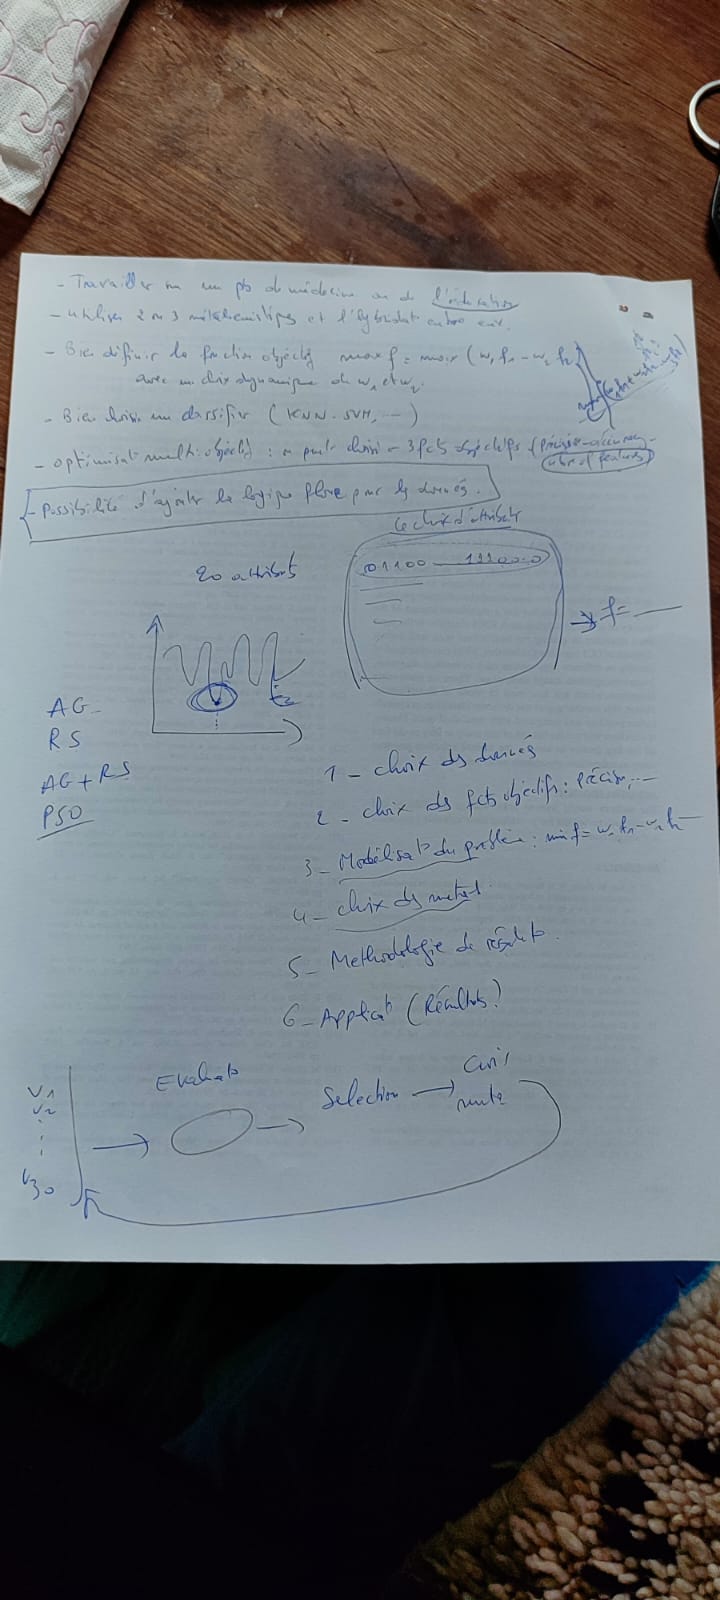 - Travailler sur un pb de médecine ou de l'éducation
- utiliser 2 ou 3 et l'hybridat entre eux.
- Bien définir la fonction objectif max f = max (w1 f1 - w2 f2)
avec un choix dynamique de w1 et w2.
- Bien choisir un classifier (KNN - SVM, ---)
- optimisat multi-objectif : on peut choisir 3 fcts objectifs (précision - accuracy -
nbre of features)
- Possibilité d'ajouter la logique floue pour les données.
Le choix d'attributs
20 attributs
01100 ___ 111000
→ f = ___
AG -
RS
AG + RS
PSO
1 - choix des données
2 - choix des fcts objectifs : précision, ---
3 - Modélisat du problème : min f = w1 f1 - w2 f2 -
4 - choix des
5 - Methodologie de
6 - Applicat (Résultats)
Evaluat
Selection → Crois
mute
V1
V2
V30